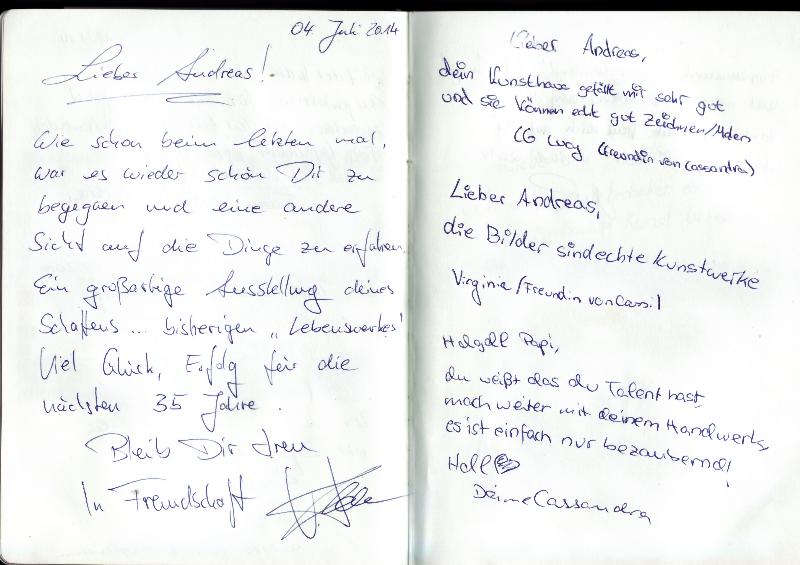 04. Juli 2014
Lieber Andreas!
Wie schon beim letzten mal,
war es wieder schön Dir zu
begegnen und eine andere
Sicht auf die Dinge zu erfahren.
Ein großartige Ausstellung deines
Schaffens ... bisherigen „Lebenswerkes"
Viel Glück, Erfolg für die
nächsten 35 Jahre.
Bleib Dir treu
In Freundschaft
Lieber Andreas,
dein Kunsthaus gefällt mir sehr gut
und sie können echt gut zeichnen/Malen
LG (Freundin von Cassandra)
Lieber Andreas,
die Bilder sind echte Kunstwerke
Virginia/Freundin von Cassi
Papi,
du weißt das du Talent hast
mach weiter mit deinem Handwerk,
es ist einfach nur bezaubernd!
Deine Cassandra